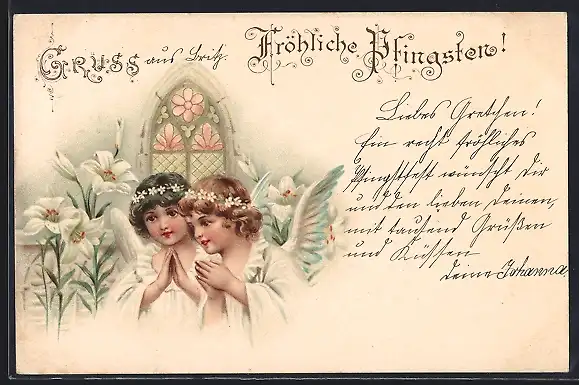 Gruss aus Britz.
Fröhliche Pfingsten!
Liebes Gretchen!
Ein recht fröhliches
Pfingstfest wünscht Dir
und den lieben Deinen,
mit tausend Grüßen
und Küssen
Deine Johanna